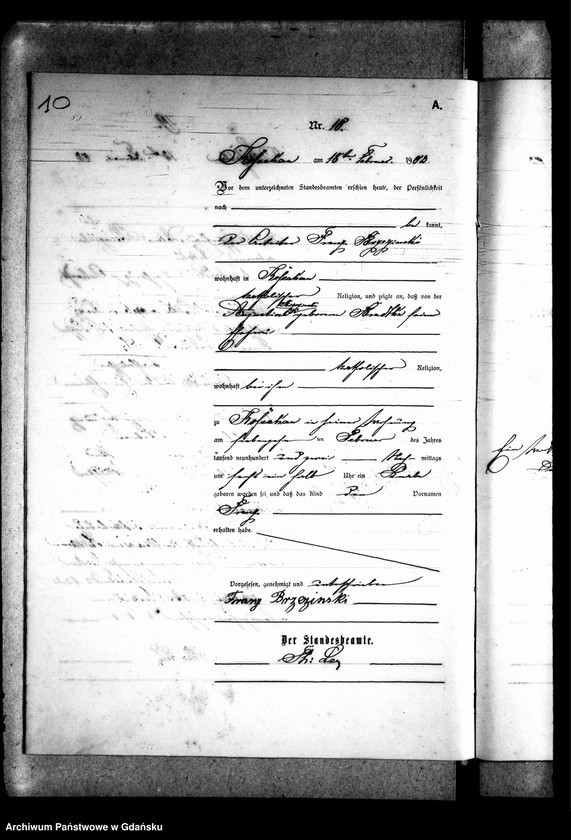 10
A.
Nr. 18.
am 18ten Februar 1902.
Vor dem unterzeichneten Standesbeamten erschien heute, der Persönlichkeit
nach
be kannt,
der Arbeiter Franz
wohnhaft in
katholischer Religion, und zeigte an, daß von der
geborenen seiner
Ehefrau
katholischer Religion,
wohnhaft bei ihm
zu in seiner Wohnung
am siebzehn ten Februar des Jahres
tausend neunhundert und zwei Nach mittags
um sechs ein halb Uhr ein Knabe
geboren worden sei und daß das Kind den Vornamen
Franz
erhalten habe.
Vorgelesen, genehmigt und unterschrieben
Franz Brzezinski
Der Standesbeamte.
Archiwum Państwowe w Gdańsku